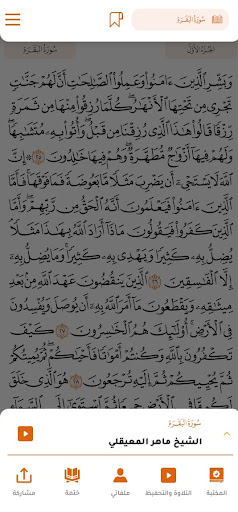 سُورَةُ البَقَرَة
الجزء الأول
سُورَةُ البَقَرَة
وَبَشِّرِ الَّذِينَ ءَامَنُوا وَعَمِلُوا الصَّٰلِحَٰتِ أَنَّ لَهُمْ جَنَّٰتٍ
تَجْرِي مِن تَحْتِهَا الْأَنْهَٰرُ كُلَّمَا رُزِقُوا مِنْهَا مِن ثَمَرَةٍ
رِّزْقًا قَالُوا هَٰذَا الَّذِي رُزِقْنَا مِن قَبْلُ وَأُتُوا بِهِ مُتَشَٰبِهًا
وَلَهُمْ فِيهَا أَزْوَٰجٌ مُّطَهَّرَةٌ وَهُمْ فِيهَا خَٰلِدُونَ ٢٥ إِنَّ
اللَّهَ لَا يَسْتَحْيِۦ أَن يَضْرِبَ مَثَلًا مَّا بَعُوضَةً فَمَا فَوْقَهَا فَأَمَّا
الَّذِينَ ءَامَنُوا فَيَعْلَمُونَ أَنَّهُ الْحَقُّ مِن رَّبِّهِمْ وَأَمَّا
الَّذِينَ كَفَرُوا فَيَقُولُونَ مَاذَا أَرَادَ اللَّهُ بِهَٰذَا مَثَلًا
يُضِلُّ بِهِ كَثِيرًا وَيَهْدِي بِهِ كَثِيرًا وَمَا يُضِلُّ بِهِ
إِلَّا الْفَٰسِقِينَ ٢٦ الَّذِينَ يَنقُضُونَ عَهْدَ اللَّهِ مِن بَعْدِ
مِيثَٰقِهِ وَيَقْطَعُونَ مَا أَمَرَ اللَّهُ بِهِ أَن يُوصَلَ وَيُفْسِدُونَ
فِي الْأَرْضِ أُولَٰئِكَ هُمُ الْخَٰسِرُونَ ٢٧ كَيْفَ
تَكْفُرُونَ بِاللَّهِ وَكُنتُمْ أَمْوَٰتًا فَأَحْيَٰكُمْ ثُمَّ يُمِيتُكُمْ
ثُمَّ يُحْيِيكُمْ ثُمَّ إِلَيْهِ تُرْجَعُونَ ٢٨ هُوَ الَّذِي خَلَقَ
لَكُم مَّا فِي الْأَرْضِ جَمِيعًا ثُمَّ اسْتَوَىٰ إِلَى السَّمَاءِ
سُورَةُ البَقَرَة
الشيخ ماهر المعيقلي
المكتبة
التلاوة والتحفيظ
ملفاتي
ختمة
مشاركة